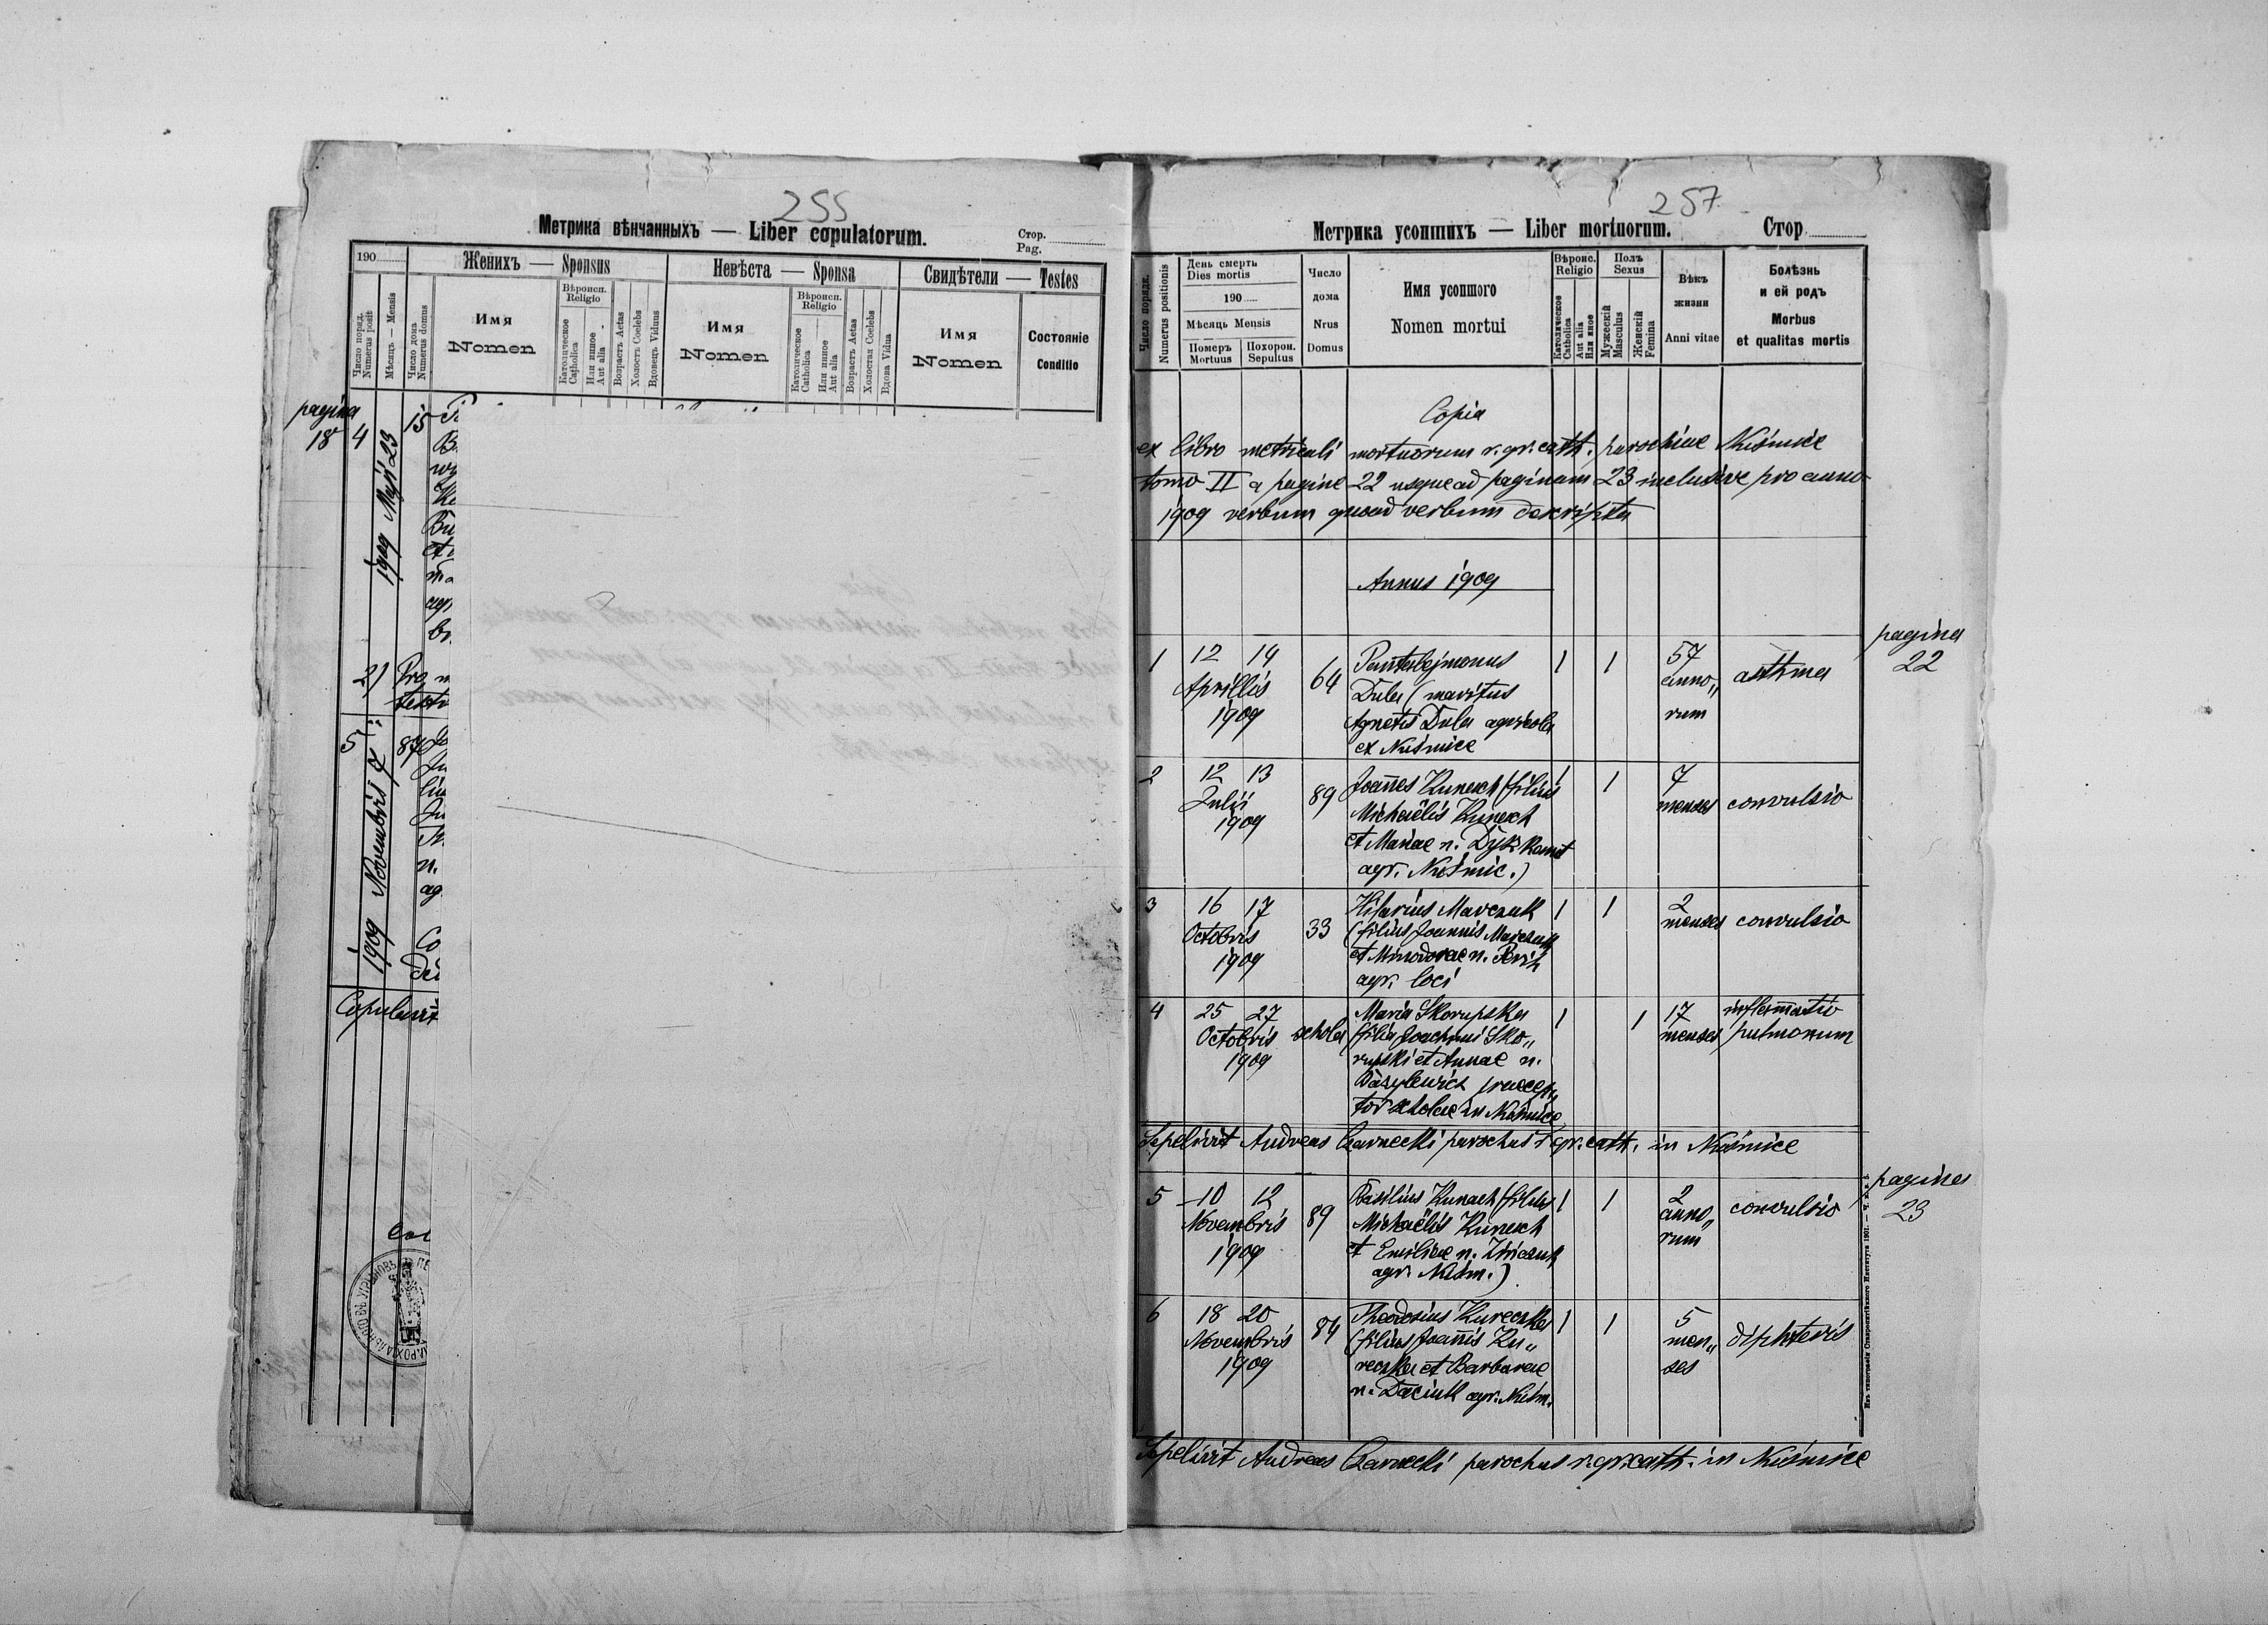 255
Метрика вѣнчанныхъ — Liber copulatorum.
Стор.
Pag.
190
Женихъ — Sponsus
Невѣста — Sponsa
Свидѣтели — Testes
Число поряд.
Numerus posit
Мѣсяць — Mensis
Число дома
Numerus domus
Имя
Nomen
Вѣроисп.
Religio
Католическое
Catholica
Или инное
Aut alia
Возрастъ Aetas
Холостъ Coelebs
Вдовець Viduus
Имя
Nomen
Вѣроисп.
Religio
Католическое
Catholica
Или инное
Aut alia
Возрастъ Aetas
Холостая Coelebs
Вдова Vidua
Имя
Nomen
Состояніе
Conditio
pagina
18 4
1909 Maji 23
15
2) Pro
5
1909 Novembris 7
87
Copulavit
257
Метрика усопшихъ — Liber mortuorum.
Стор
Число поряд.
Numerus positionis
День смерть
Dies mortis
190
Мѣсяць Mensis
Померъ
Mortuus
Похорон.
Sepultus
Число
дома
Nrus
Domus
Имя усопшого
Nomen mortui
Вѣроис.
Religio
Католическое
Catholica
Aut alia
Или иное
Полъ
Sexus
Мужескій
Masculus
Женскій
Femina
Вѣкъ
жизни
Anni vitae
Болѣзнь
и ей родъ
Morbus
et qualitas mortis
Copia
ex libro metricali mortuorum r. gr. cath. parochiae Nuśmice
tomo II a pagina 22 usque ad paginam 23 inclusive pro anno
1909 verbum quoad verbum descripta
Annus 1909
pagina
22
1 12 14 Aprillis 1909 64 1 1 57 anno„rum asthma
Pantalejmonus
Dula (maritus
Agnetis Dula agricola
ex Nuśmice
2 12 13 Julii 1909 89 1 1 7 menses convulsio
Joannes Kunach (filius
Michaëlis Kunach
et Mariae n.
agr. Nuśmic.)
3 16 17 Octobris 1909 33 1 1 2 menses convulsio
Hilarius Marczuk
(filius Joannis Marczuk
et Minodorae n.
agr. loci
4 25 27 Octobris 1909 schola 1 1 17 menses inflammatio pulmonum
Maria Skorupska
(filia Joachimi Sko„
rupski et Annae n.
Bazylewicz praecep„
tor scholae in Nuśmice
Sepelivit Andreas Czarnecki parochus r. gr. cath. in Nuśmice
pagina
23
5 10 12 Novembris 1909 89 1 1 2 anno„rum convulsio
Basilius Kunach (filius
Michaëlis Kunach
et Emiliae n.
agr. Nuśm.)
6 18 20 Novembris 1909 84 1 1 5 men„ses diphteris
Theodosius Kureczka
(filius Joannis Ku„
reczka et Barbarae
n. Daciuk agr. Nuśm.
Sepelivit Andreas Czarnecki parochus r. gr. cath. in Nuśmice
Изъ типографіи Ставропигійского Института 1901.